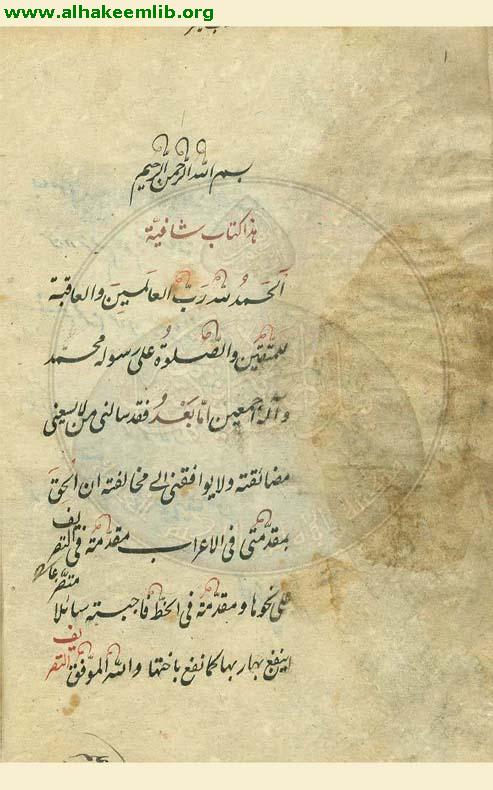 www.alhakeemlib.org
١
بسم الله الرحمن الرحيم
هذا كتاب شافية
اَلحَمدُ للهِ رَبِّ العالَمينَ والعاقبة
للمتّقين والصَّلوةُ على رسوله محمّد
وآله اجمعين امّا بَعْدُ فقد سالنى من لا يسعنى
مضائقته ولا يوافقنى الى مخالفته ان الحقَ
بمقدّمتى فى الاعراب مقدّمة فى التصريف
على نحوها ومقدّمة فى الخطّ فاجبته سائلا
متضرّعا
ان ينفع بها ربها كما نفع باختها والله الموفّق التصريف